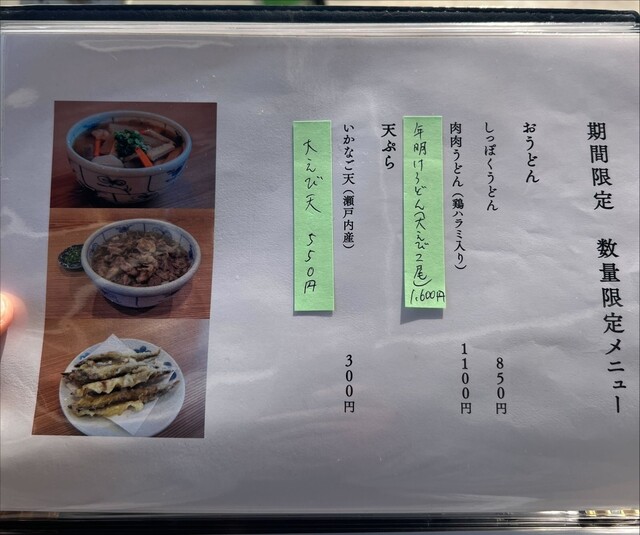 期間限定 数量限定メニュー
おうどん
しっぽくうどん 850円
肉肉うどん（鶏ハラミ入り） 1100円
年明けうどん（大えび2尾） 1,600円
天ぷら
いかなご天（瀬戸内産） 300円
大えび天 550円